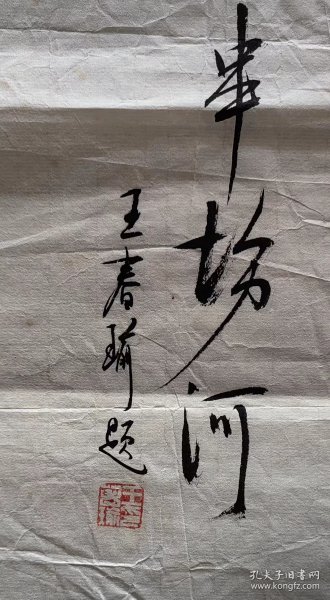 串场河
王春瑜题
孔夫子旧书网
www.kongfz.com